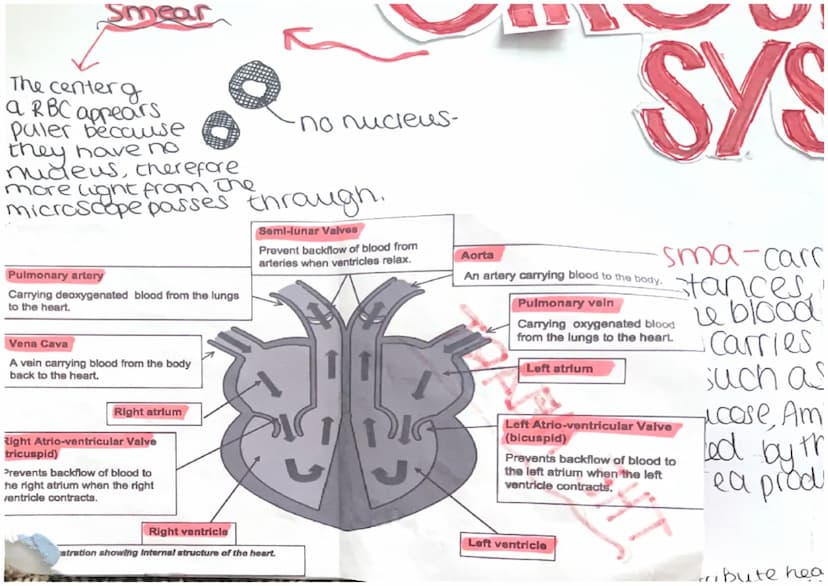 smear
SYS
The center of
a RBC appears
paler because
they have no
nucleus, therefore
more light from the
microscope passes through.
no nucleus-
Semi-lunar Valves
Prevent backflow of blood from
arteries when ventricles relax.
Aorta
An artery carrying blood to the body.
Pulmonary artery
Carrying deoxygenated blood from the lungs
to the heart.
Pulmonary vein
Carrying oxygenated blood
from the lungs to the heart.
Vena Cava
A vein carrying blood from the body
back to the heart.
Left atrium
Right atrium
Right Atrio-ventricular Valve
tricuspid)
Prevents backflow of blood to
he right atrium when the right
ventricle contracts.
Left Atrio-ventricular Valve
(bicuspid)
Prevents backflow of blood to
the left atrium when the left
ventricle contracts.
Right ventricle
Left ventricle
stration showing internal structure of the heart.
sma - carr
stances,
blood
carries
such as
ucose, Am
ed by th
ea produ
ribute hea